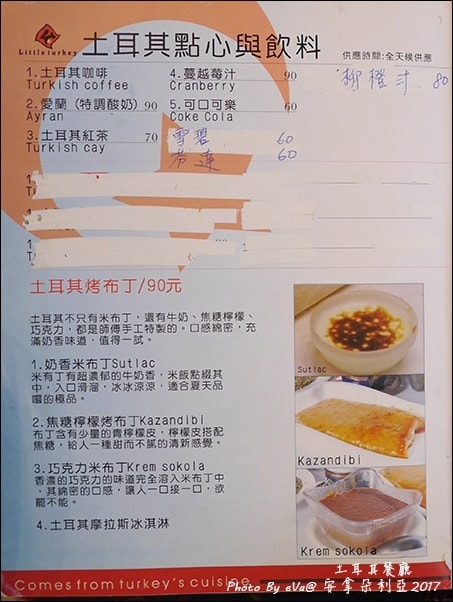 Little turkey
土耳其點心與飲料
供應時間:全天候供應
1.土耳其咖啡
Turkish coffee
4.蔓越莓汁 90
Cranberry
柳橙汁 80
2.愛蘭 (特調酸奶) 90
Ayran
5.可口可樂 60
Coke Cola
3.土耳其紅茶 70
Turkish cay
雪碧 60
芬達 60
土耳其烤布丁/90元
土耳其不只有米布丁,還有牛奶、焦糖檸檬、
巧克力,都是師傅手工特製的。口感綿密,充
滿奶香味道,值得一試。
1.奶香米布丁Sutlac
米布丁有超濃郁的牛奶香,米飯點綴其
中,入口滑溜,冰冰涼涼,適合夏天品
嚐的極品。
2.焦糖檸檬烤布丁Kazandibi
布丁含有少量的青檸檬皮,檸檬皮搭配
焦糖,給人一種甜而不膩的清新感覺。
3.巧克力米布丁Krem sokola
香濃的巧克力的味道完全溶入米布丁中
,其綿密的口感,讓人一口接一口,欲
罷不能。
4.土耳其摩拉斯冰淇淋
Sutlac
Kazandibi
Krem sokola
Comes from turkey's cuisine
土耳其餐廳
Photo By eVa@ 安拿朵利亞2017